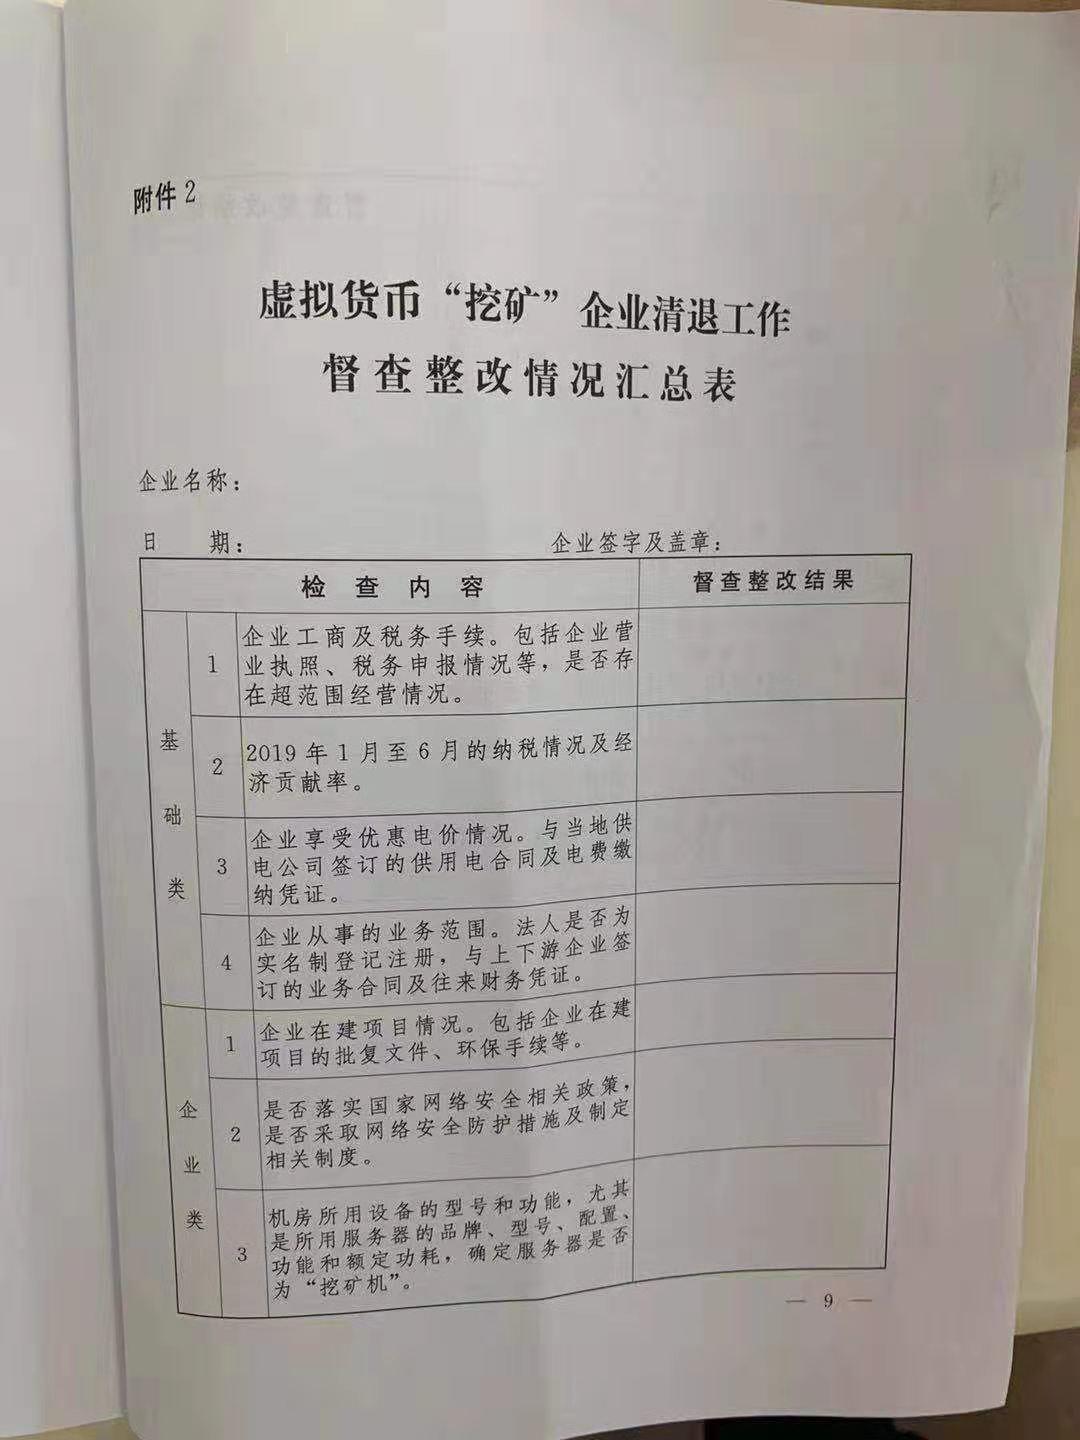 附件 2
虚拟货币“挖矿”企业清退工作
督查整改情况汇总表
企业名称：
日 期： 企业签字及盖章：
检 查 内 容 督查整改结果
基础类
1 企业工商及税务手续。包括企业营
业执照、税务申报情况等，是否存
在超范围经营情况。
2 2019 年 1 月至 6 月的纳税情况及经
济贡献率。
3 企业享受优惠电价情况。与当地供
电公司签订的供用电合同及电费缴
纳凭证。
4 企业从事的业务范围。法人是否为
实名制登记注册，与上下游企业签
订的业务合同及往来财务凭证。
企业类
1 企业在建项目情况。包括企业在建
项目的批复文件、环保手续等。
2 是否落实国家网络安全相关政策，
是否采取网络安全防护措施及制定
相关制度。
3 机房所用设备的型号和功能，尤其
是所用服务器的品牌、型号、配置、
功能和额定功耗，确定服务器是否
为“挖矿机”。
— 9 —